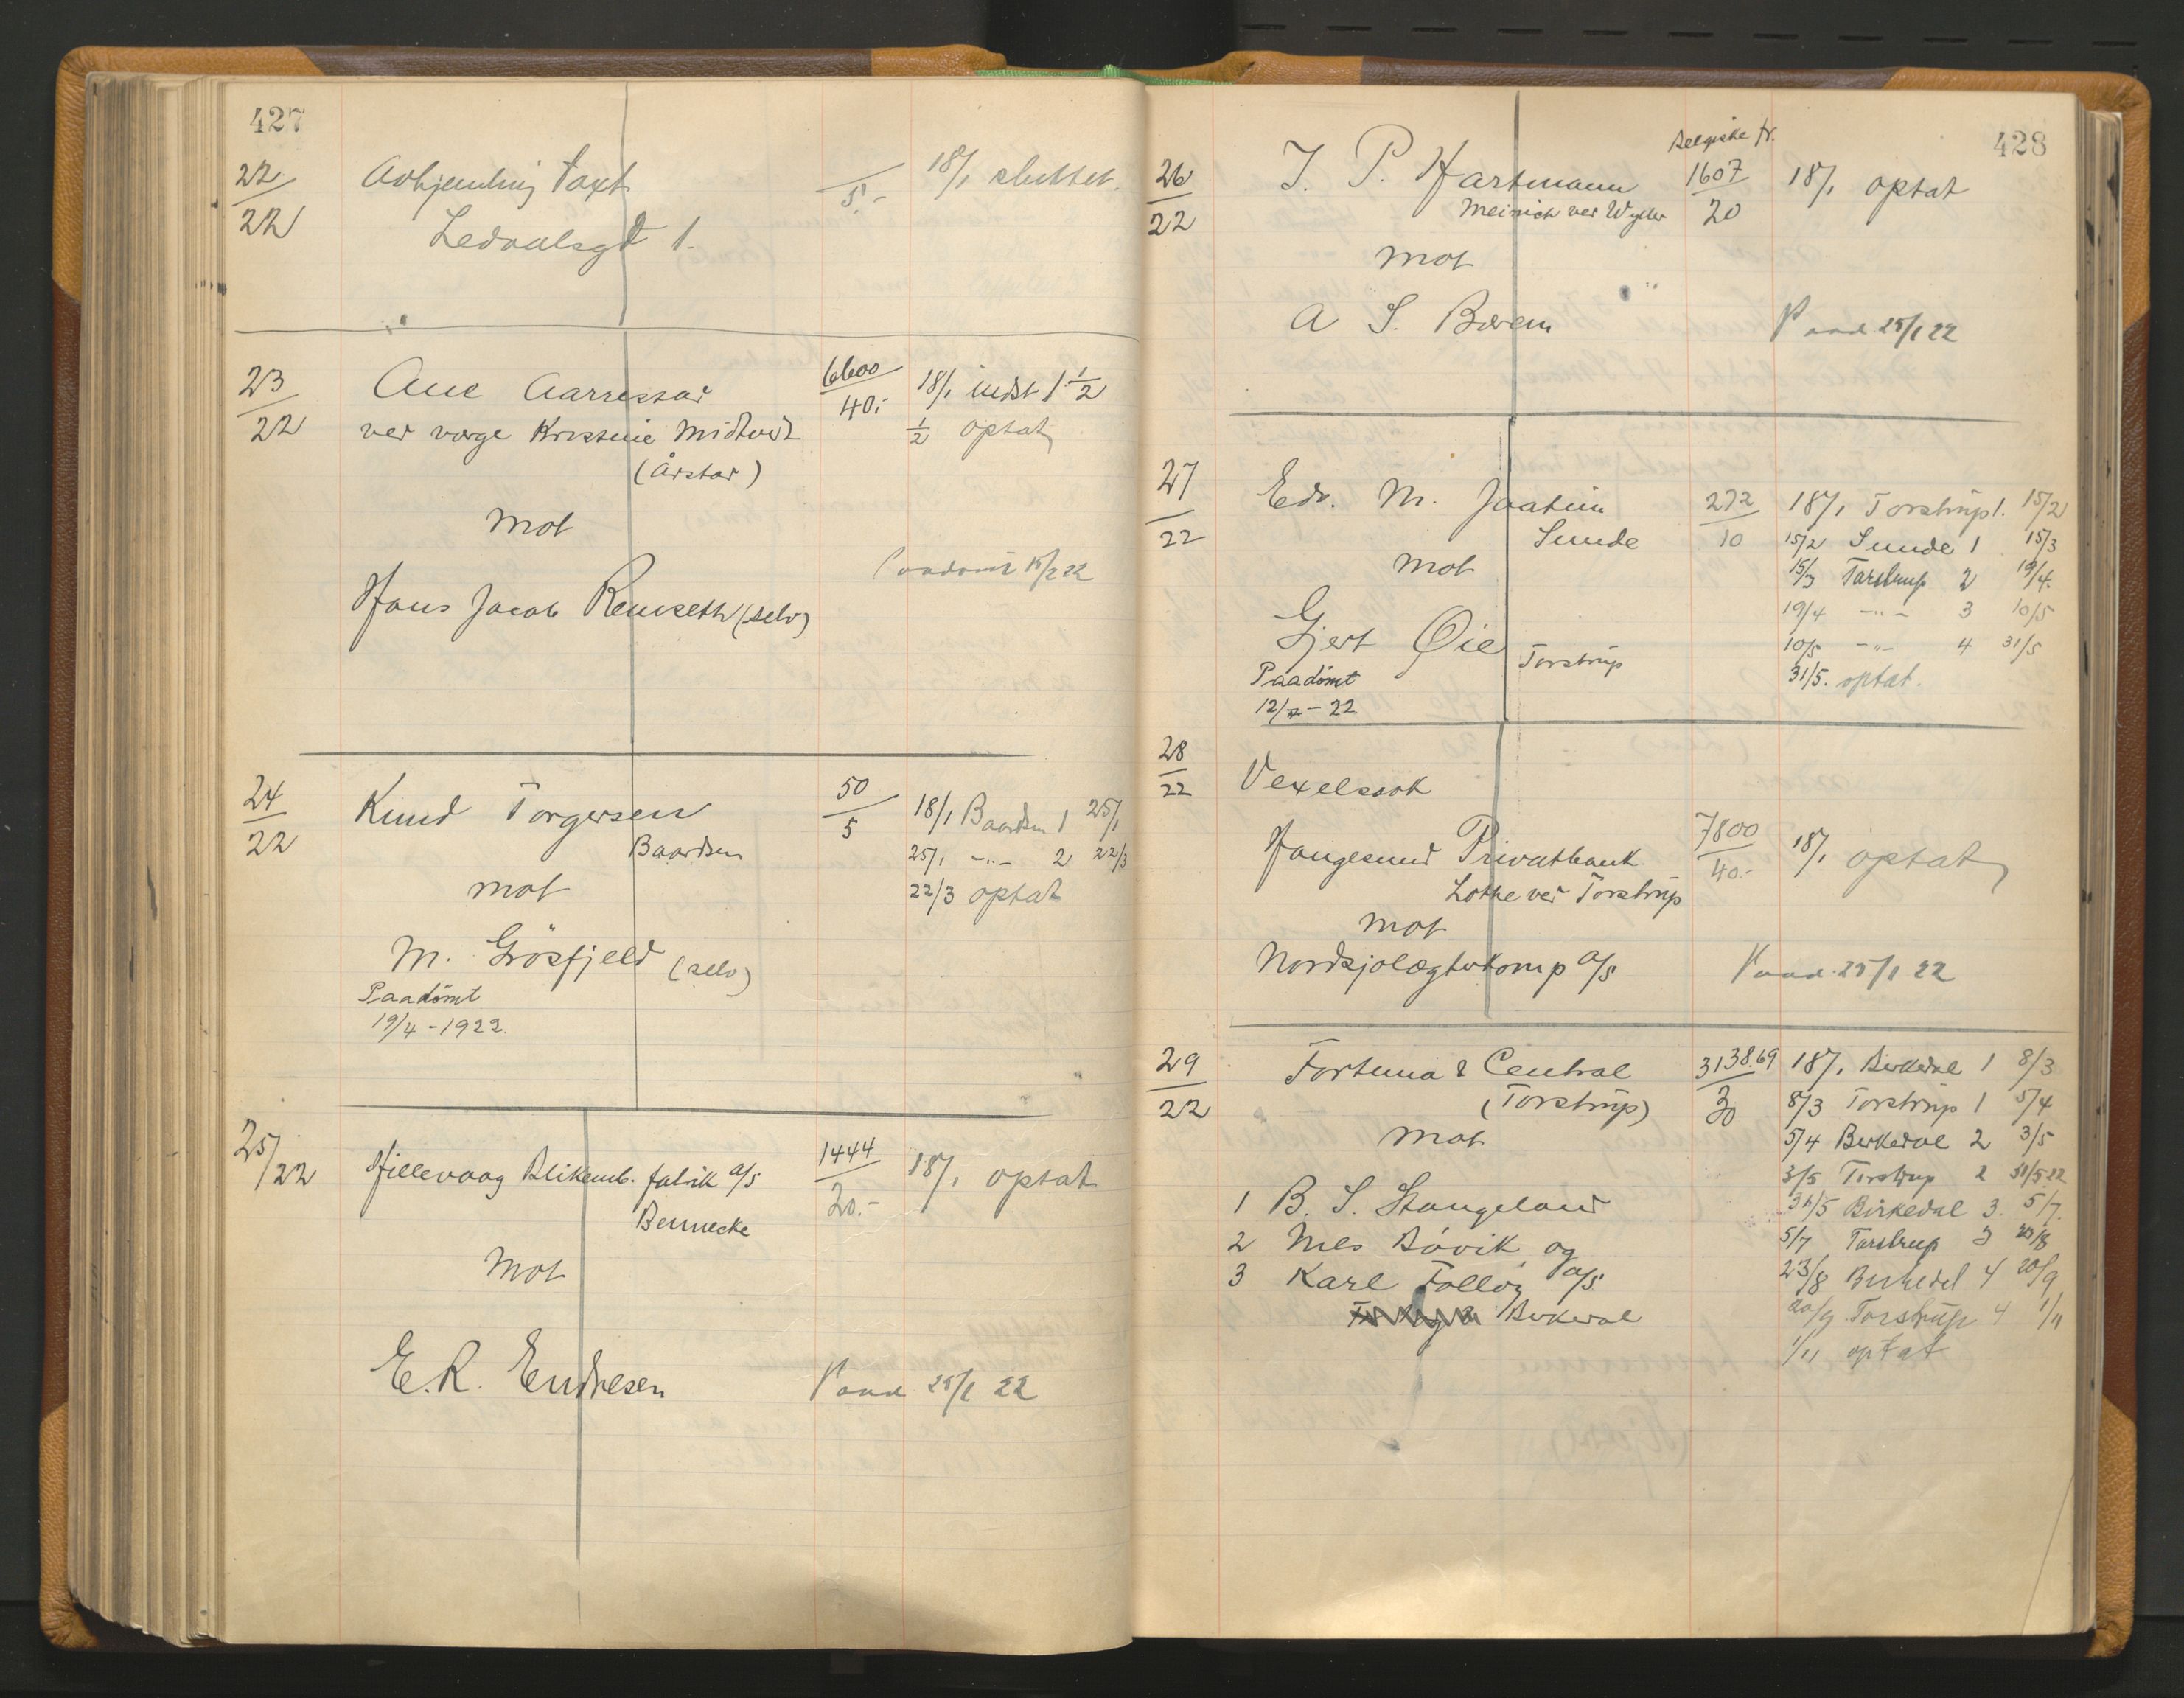 427
22/22 Avhjemling taxt 5.- 18/1 sluttet.
Ledaalsgt 1.
23/22 Ane Aarrestad 6600/40.- 18/1 indst 1 1/2
ved værge Kristine Midtveit 1/2 optat
(Årstad)
mot
Paadømt 15/2 22
Hans Jacob Remseth (selv)
24/22 Knud Torgersen 50/5 18/1 Baardsen 1 25/1
Baardsen 25/1 -"- 2 22/3
mot 22/3 optat
M. Grösfjeld (selv)
Paadömt
19/4 - 1922.
25/22 Hillevaag Blikemb. fabrik A/S 1444/20.- 18/1 optat
Bennecke
mot
E. R. Endresen Paad 25/1 22
428
Belgiske fr.
26/22 J. P. Hartmann 1607/20 18/1 optat
Meinich ved Wyller
mot
A S. Bærem Paad 25/1 22
27/22 Edv. M. Jaatun 272/10 18/1 Torstrup 1. 15/2
Sunde 15/2 Sunde 1 15/3
mot 15/3 Torstrup 2 19/4.
19/4 -"- 3 10/5
Gjert Øie 10/5 -"- 4 31/5
Torstrup
Paadömt 31/5. optat.
28/22 Vexelssak
Haugesund Privatbank 7800/40.- 18/1 optat
Lothe ved Torstrup
mot
Nordsjølægterkomp A/S Paad. 25/1 22
29/22 Fortuna & Central 3138.69/30 18/1 Birkedal 1 8/3
(Torstrup) 8/3 Torstrup 1 5/4
mot 5/4 Birkedal 2 3/5
3/5 Torstrup 2 31/5 22
1 B. S. Stangeland 31/5 Birkedal 3. 5/7.
2 Nils Bövik og 5/7 Torstrup 3 23/8
3 Karl Follöy A/S 23/8 Birkedal 4 20/9
Birkedal 20/9 Torstrup 4 1/11
1/11 optat